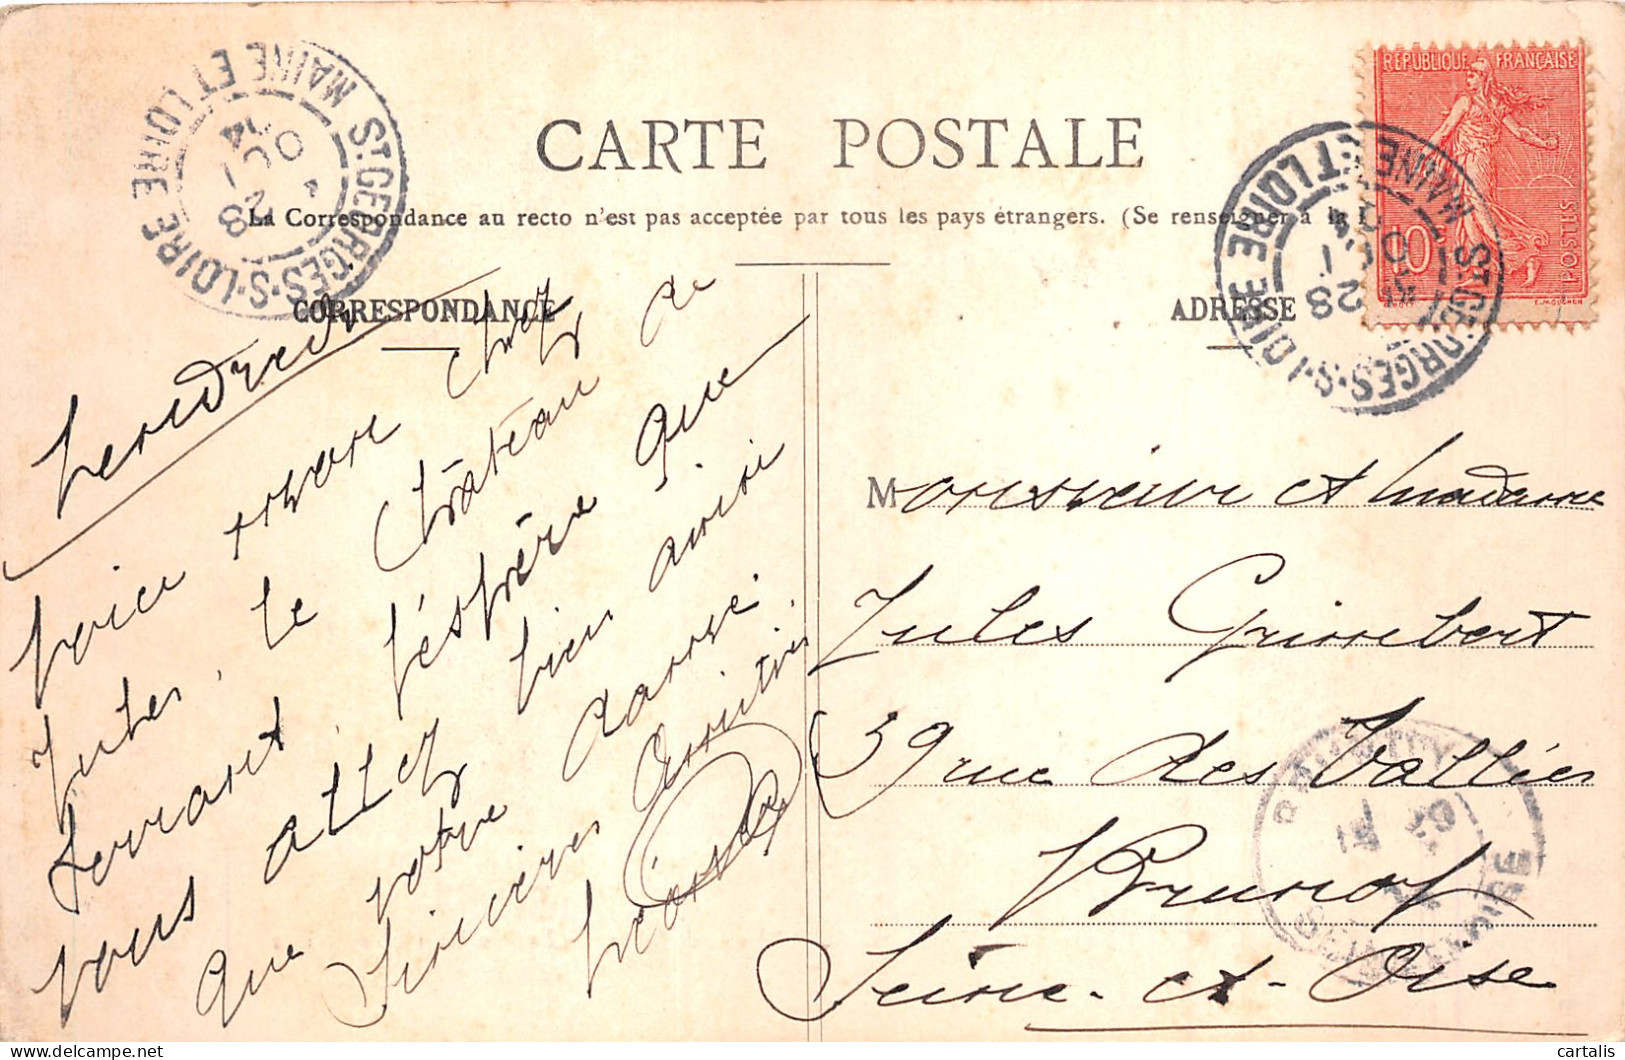 CARTE POSTALE
La Correspondance au recto n'est pas acceptée par tous les pays étrangers. (Se renseigner à la
CORRESPONDANCE
ADRESSE
ST. GEORGES-S-LOIRE MAINE ET LOIRE
28 OCT 04
RÉPUBLIQUE FRANÇAISE
10
POSTES
E. MOUCHON
ST. GEORGES-S-LOIRE MAINE ET LOIRE
28 OCT 04
Vendredi
Voici mon chez
Jules, le Château de
Serrant, j'éspère que
vous allez bien ainsi
que votre
Sincères Amitiés
Monsieur et Madame
Jules Grimbert
39 rue des Vallées
Brunoy
Seine-et-Oise
SEINE-ET-OISE
cartalis
delcampe.net